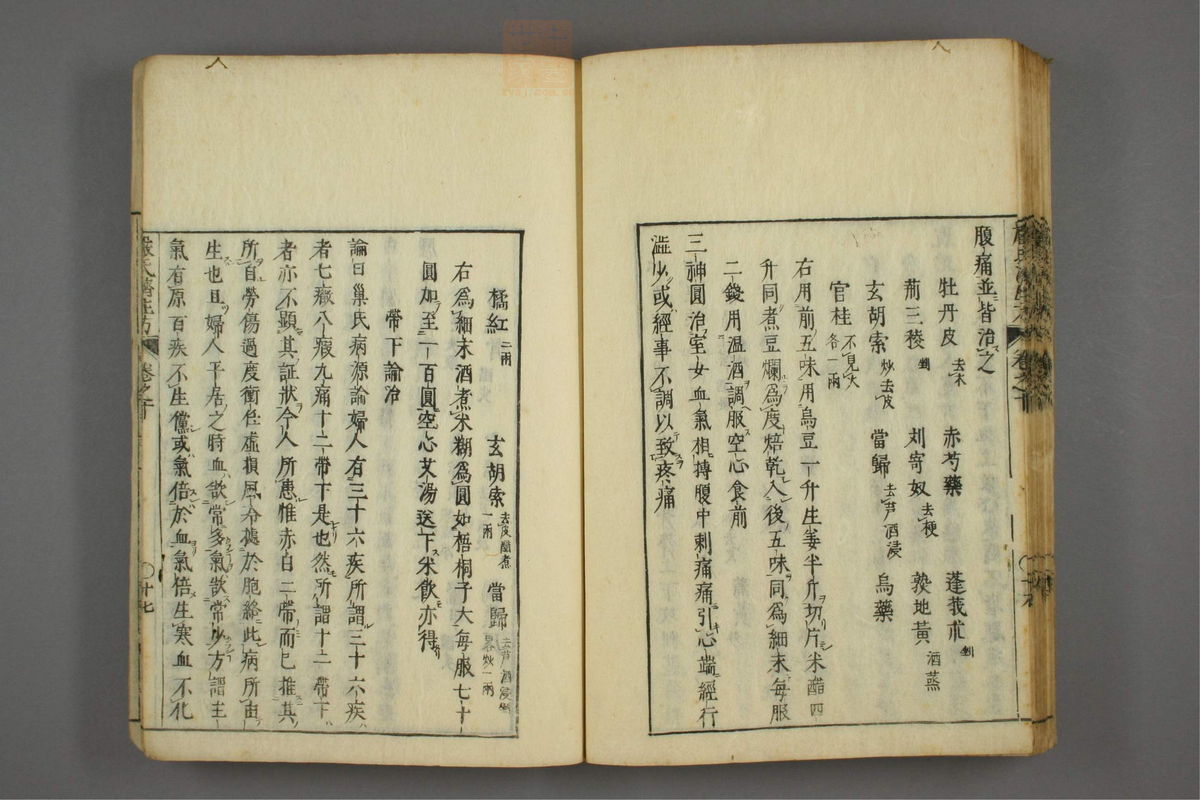 腹痛並皆治之
牡丹皮去木 赤芍藥 蓬莪朮剉
荊三稜剉 刘寄奴去梗 熟地黃酒蒸
玄胡索炒去皮 當歸去芦酒浸 烏藥
官桂不見火各一兩
右用前五味用烏豆一升生姜半斤切片米醋四
升同煮豆爛爲度焙乾入後五味同爲細末每服
二錢用温酒調服空心食前
三神圓治室女血氣相搏腹中刺痛痛引心端經行
澁少或經事不調以致疼痛
橘紅二兩 玄胡索去皮醋煮一兩 當歸去芦酒浸剉畧炒一兩
右爲細末酒煮米糊爲圓如梧桐子大每服七十
圓加至一百圓空心艾湯送下米飲亦得
帶下論治
論曰巢氏病源論婦人有三十六疾所謂三十六疾
者七癥八瘕九痛十二帶下是也然所謂十二帶下
者亦不顯其証狀今人所患惟赤白二帶而已推其
所自勞傷過度衝任虛損風冷據於胞絡此病所由
生也且婦人平居之時血欲常多氣欲常少方謂主
氣有原百疾不生儻或氣倍於血氣倍生寒血不化
嚴氏濟生方 卷之十 十七